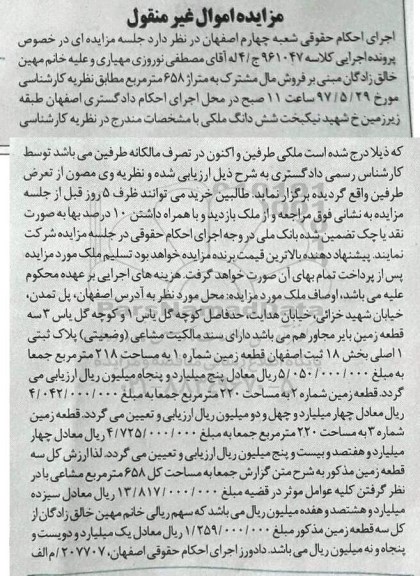 مزایده اموال غیر منقول
اجرای احکام حقوقی شعبه چهارم اصفهان در نظر دارد جلسه مزایده ای در خصوص
پرونده اجرایی کلاسه ۹۶۱۰۴۷ ج/۴ له آقای مصطفی نوروزی مهیاری و علیه خانم مهین
خالق زادگان مبنی بر فروش مال مشترک به متراژ ۶۵۸ مترمربع مطابق نظریه کارشناسی
مورخ ۹۷/۵/۲۹ ساعت ۱۱ صبح در محل اجرای احکام دادگستری اصفهان طبقه
زیرزمین خ شهید نیکبخت شش دانگ ملکی با مشخصات مندرج در نظریه کارشناسی
که ذیلا درج شده است ملکی طرفین و اکنون در تصرف مالکانه طرفین می باشد توسط
کارشناس رسمی دادگستری به شرح ذیل ارزیابی شده و نظریه وی مصون از تعرض
طرفین واقع گردیده برگزار نماید. طالبین خرید می توانند ظرف ۵ روز قبل از جلسه
مزایده به نشانی فوق مراجعه و از ملک بازدید و با همراه داشتن ۱۰ درصد بها به صورت
نقد یا چک تضمین شده بانک ملی در وجه اجرای احکام حقوقی در جلسه مزایده شرکت
نمایند. پیشنهاد دهنده بالاترین قیمت برنده مزایده خواهد بود تسلیم ملک مورد مزایده
پس از پرداخت تمام بهای آن صورت خواهد گرفت. هزینه های اجرایی بر عهده محکوم
علیه می باشد، اوصاف ملک مورد مزایده: محل مورد نظر به آدرس اصفهان، پل تمدن،
خیابان شهید خزائی، خیابان هدایت، حدفاصل کوچه گل یاس ۱ و کوچه گل یاس ۳ سه
قطعه زمین بایر مجاور هم می باشد دارای سند مالکیت مشاعی (وضعیتی) پلاک ثبتی
۱ اصلی بخش ۱۸ ثبت اصفهان قطعه زمین شماره ۱ به مساحت ۲۱۸ مترمربع جمعا
به مبلغ ۵/۰۵۰/۰۰۰/۰۰۰ ریال معادل پنج میلیارد و پنجاه میلیون ریال ارزیابی می
گردد. قطعه زمین شماره ۲ به مساحت ۲۲۰ مترمربع جمعا به مبلغ ۴/۰۴۲/۰۰۰/۰۰۰
ریال معادل چهار میلیارد و چهل و دو میلیون ریال ارزیابی و تعیین می گردد. قطعه زمین
شماره ۳ به مساحت ۲۲۰ مترمربع جمعا به مبلغ ۴/۷۲۵/۰۰۰/۰۰۰ ریال معادل چهار
میلیارد و هفتصد و بیست و پنج میلیون ریال ارزیابی و تعیین می گردد. لذا ارزش کل سه
قطعه زمین مذکور به شرح متن گزارش جمعا به مساحت کل ۶۵۸ مترمربع مشاعی با در
نظر گرفتن کلیه عوامل موثر در قضیه مبلغ ۱۳/۸۱۷/۰۰۰/۰۰۰ ریال معادل سیزده
میلیارد و هشتصد و هفده میلیون ریال می باشد که سهم ریالی خانم مهین خالق زادگان از
کل سه قطعه زمین مذکور مبلغ ۱/۲۵۹/۰۰۰/۰۰۰ ریال معادل یک میلیارد و دویست و
پنجاه و نه میلیون ریال می باشد. دادورز اجرای احکام حقوقی اصفهان، ۲۰۷۷۰۷/م الف